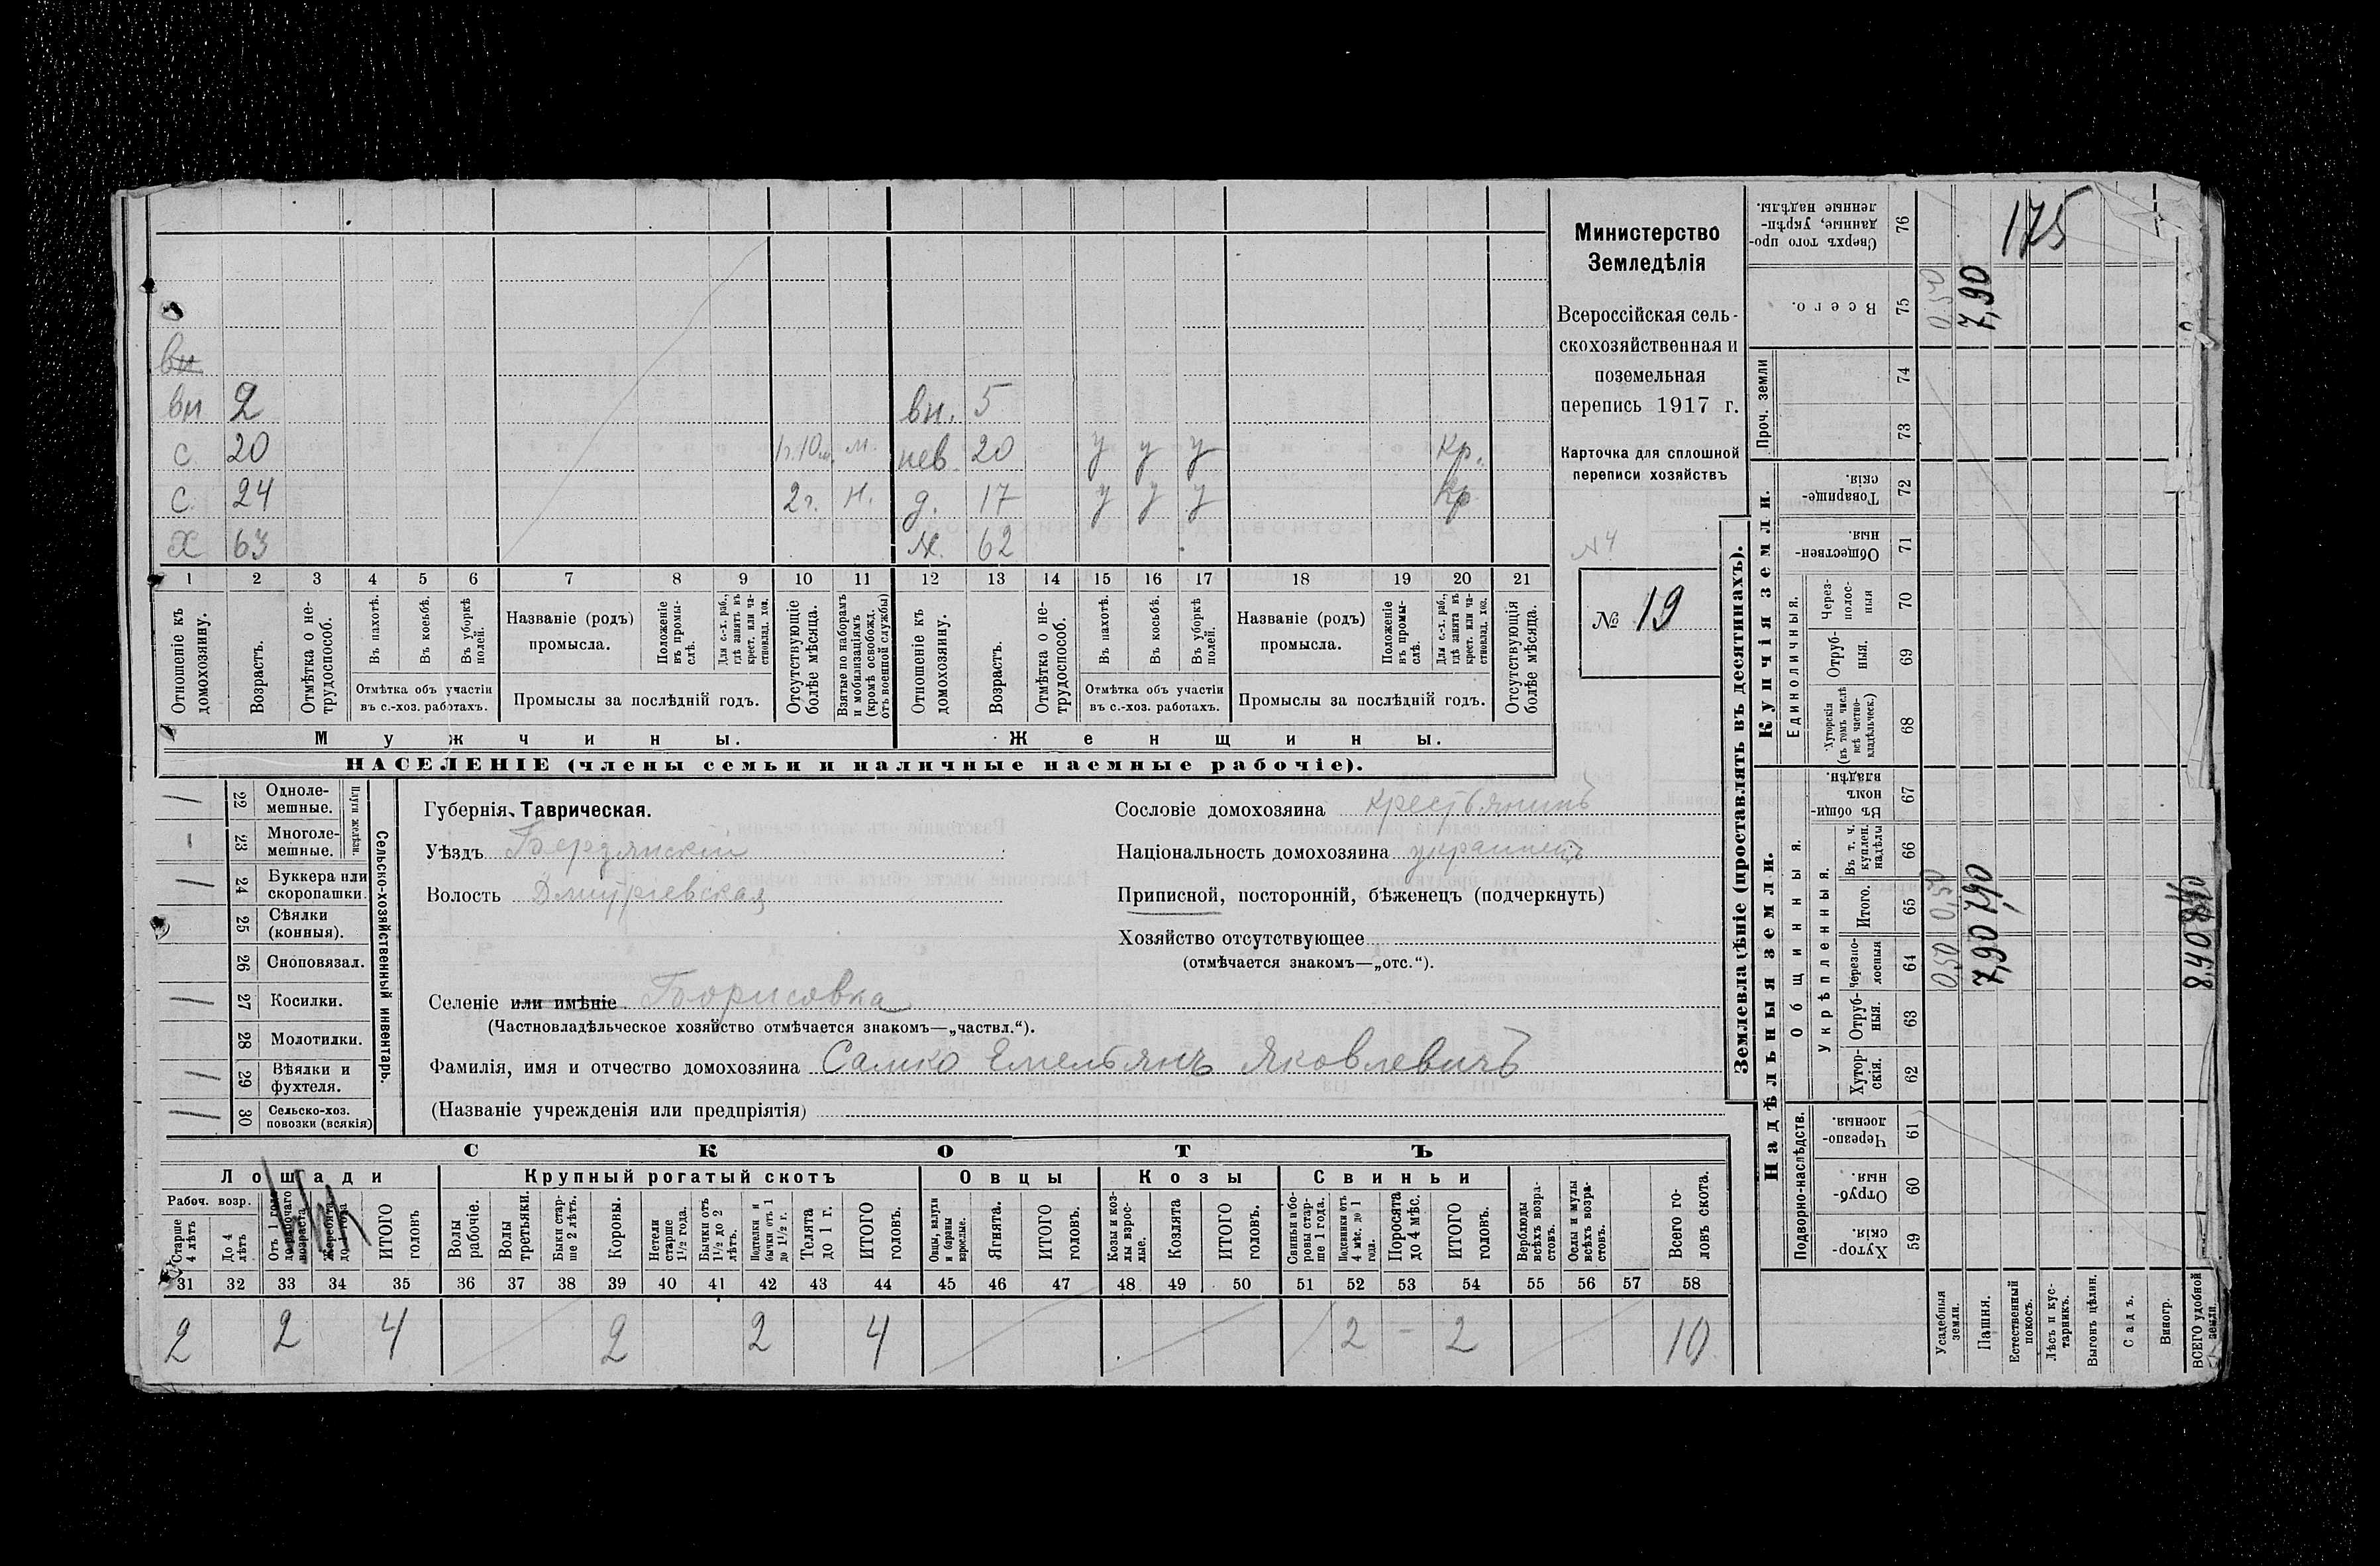 175
Министерство
Земледѣлія
Всероссійская сель-
скохозяйственная и
поземельная
перепись 1917 г.
Карточка для сплошной
переписи хозяйствъ
N4
№ 19
вн
вн 2 вн. 5
с 20 1г.10м. м. нев 20 у у у кр.
с. 24 2г. н. д. 17 у у у кр
х 63 ж. 62
1 2 3 4 5 6 7 8 9 10 11 12 13 14 15 16 17 18 19 20 21
Отношеніе къ домохозяину.
Возрастъ.
Отмѣтка о не-трудоспособ.
Въ пахотѣ.
Въ косьбѣ.
Въ уборкѣ полей.
Отмѣтка объ участіи въ с.-хоз. работахъ.
Названіе (родъ) промысла.
Положеніе въ промы-слѣ.
Для с.-х. раб., гдѣ занятъ въ крест. или ча-стновлад. хоз.
Промыслы за послѣдній годъ.
Отсутствующіе болѣе мѣсяца.
Взятые по наборамъ и мобилизаціямъ (кромѣ освобожд. отъ военной службы)
Отношеніе къ домохозяину.
Возрастъ.
Отмѣтка о не-трудоспособ.
Въ пахотѣ.
Въ косьбѣ.
Въ уборкѣ полей.
Отмѣтка объ участіи въ с.-хоз. работахъ.
Названіе (родъ) промысла.
Положеніе въ промы-слѣ.
Для с.-х. раб., гдѣ занята въ крест. или ча-стновлад. хоз.
Промыслы за послѣдній годъ.
Отсутствующія болѣе мѣсяца.
Мужчины. Женщины.
НАСЕЛЕНІЕ (члены семьи и наличные наемные рабочіе).
Сельско-хозяйственный инвентарь.
Плуги желѣзн.
/ 22 Одноле-мешные.
– 23 Многоле-мешные.
/ 24 Буккера или скоропашки.
25 Сѣялки (конныя).
26 Сноповязал.
/ 27 Косилки.
28 Молотилки.
/ 29 Вѣялки и фухтеля.
// 30 Сельско-хоз. повозки (всякія)
Губернія Таврическая.
Уѣздъ Бердянскій
Волость Дмитріевская
Сословіе домохозяина крестьянинъ
Національность домохозяина украинецъ
Приписной, посторонній, бѣженецъ (подчеркнуть)
Хозяйство отсутствующее
(отмѣчается знакомъ—„отс.“).
Селеніе или имѣніе Борисовка
(Частновладѣльческое хозяйство отмѣчается знакомъ—„частвл.“).
Фамилія, имя и отчество домохозяина Салко Емельянъ Яковлевичъ
(Названіе учрежденія или предпріятія)
СКОТЪ
Лошади Крупный рогатый скотъ Овцы Козы Свиньи
Рабоч. возр.
Старше 4 лѣтъ
До 4 лѣтъ
Отъ 1 года до рабочаго возраста
Жеребята до 1 года
ИТОГО головъ
Волы рабочіе.
Волы третьяки.
Быки стар-ше 2 лѣтъ.
Коровы.
Нетели старше 1½ года.
Бычки отъ 1½ до 2 лѣтъ.
Подтелки и бычки отъ 1 до 1½ г.
Телята до 1 г.
ИТОГО головъ.
Овцы, валухи и бараны взрослые.
Ягнята.
ИТОГО головъ.
Козы и коз-лы взрос-лые.
Козлята
ИТОГО головъ.
Свиньи и бо-ровы стар-ше 1 года.
Подсвинки отъ 4 мѣс. до 1 года.
Поросята до 4 мѣс.
ИТОГО головъ.
Верблюды всѣхъ возра-стовъ.
Ослы и мулы всѣхъ возра-стовъ.
Всего го-ловъ скота.
31 32 33 34 35 36 37 38 39 40 41 42 43 44 45 46 47 48 49 50 51 52 53 54 55 56 57 58
2 2 4 2 2 4 2 – 2 10
Землевладѣніе (проставлять въ десятинахъ).
Надѣльныя земли. Купчія земли. Проч. земли
Подворно-наслѣдств.
Общинныя.
Укрѣпленныя.
Единоличныя.
Хутор-скія. 59
Отруб-ныя. 60
Черезпо-лосныя. 61
Хутор-скія. 62
Отруб-ныя. 63
Черезпо-лосныя 64
Итого. 65
Въ т. ч. куплен. надѣлы 66
Въ общин-номъ владѣн. 67
Хуторскія (въ томъ числѣ всѣ частно-владѣльческ.) 68
Отруб-ныя. 69
Через-полос-ныя 70
Обществен-ныя. 71
Товарище-скія. 72
73
74
Всего. 75
Сверхъ того про-данные, укрѣп-ленные надѣлы. 76
Усадебныя земли. 0,50 0,50 0,50
Пашня. 7,90 7,90 7,90
Естественный покосъ.
Лѣсъ и кус-тарникъ.
Выгонъ цѣлин.
Садъ.
Виногр.
ВСЕГО удобной земли. 8,40